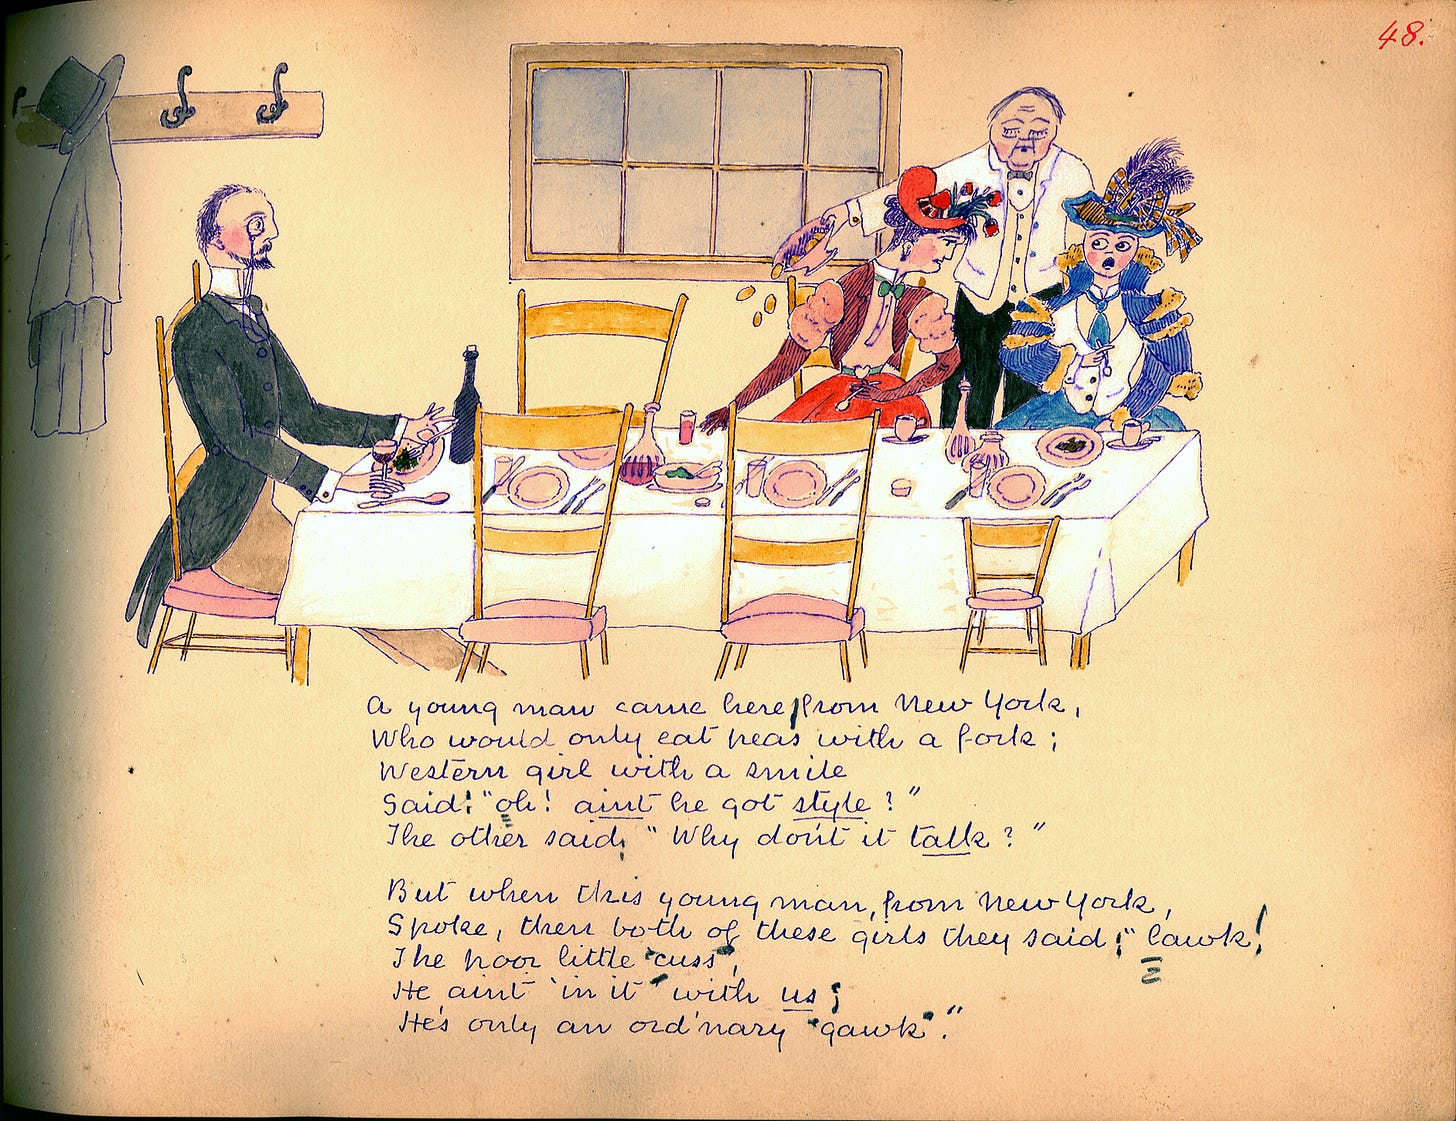 48.
A young man came here, from New York,
Who would only eat peas with a fork;
Western girl with a smile
Said: "oh! aint he got style?"
The other said, "Why don't it talk?"
But when this young man, from New York,
Spoke, then both of these girls they said: "lawk!
The poor little "cuss",
He aint "in it" with us;
He's only an ord'nary "gawk"."